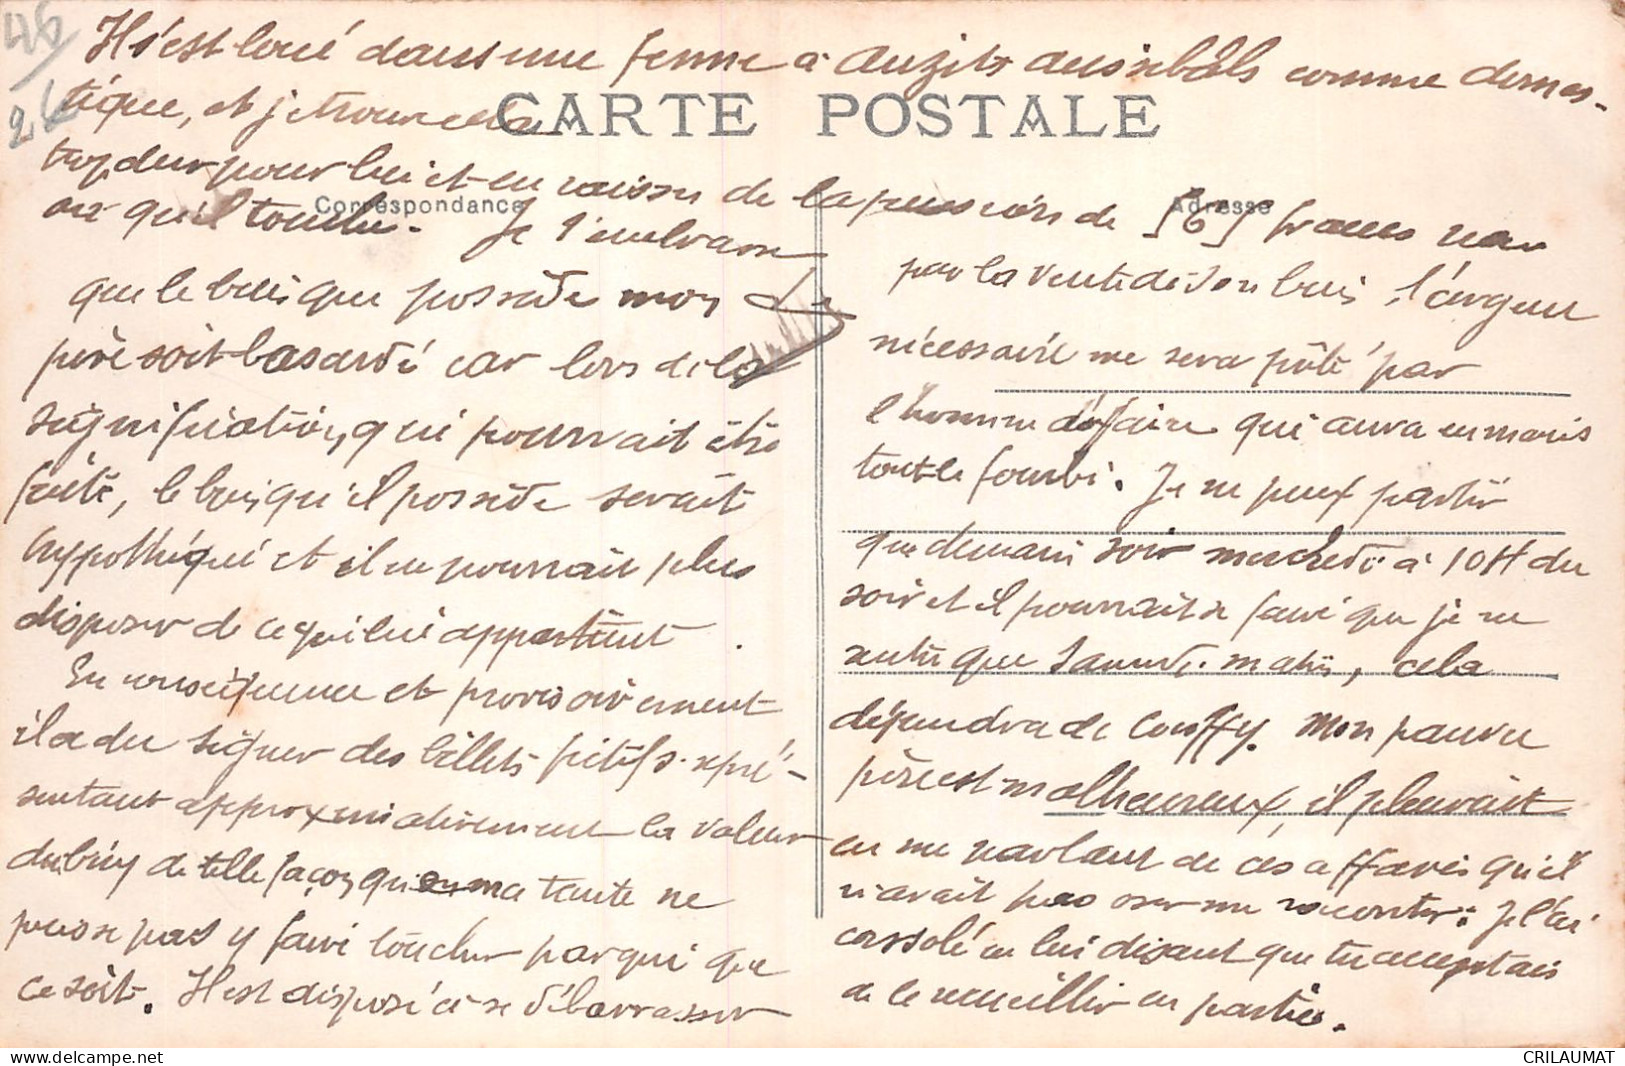 46
26
Il s'est loué dans une ferme à Auzits aussibals comme domes-
tique, et je trouve cela
CARTE POSTALE
trop dur pour lui et en raison de la pension de 565 francs
Correspondance
Adresse
qu'il touche. Je t'embrasse
que le buis que possède mon
père soit basardé car lors de la
signification, qui pourrait être
faite, le buis qu'il possède serait
hypothéqué et il ne pourrait plus
disposer de ce qui lui appartient.
En conséquence et provisoirement
il a du signer des billets fictifs repré-
sentant approximativement la valeur
du buis de telle façon que ma tante ne
puisse pas y faire toucher par qui que
ce soit. Il est disposé à se débarrasser
par la vente de son buis, l'argent
nécessaire me sera prêté par
l'homme d'affaire qui aura en mains
tout le fourbi. Je ne peux partir
que demain soir mercredi à 10H du
soir et il pourrait se faire que je ne
rentre que Samedi matin, cela
dépendra de Couffy. Mon pauvre
père est malheureux, il pleurait
en me parlant de ces affaires qu'il
n'avait pas oser me raconter: Je l'ai
consolé en lui disant que tu acceptais
de le recueillir en partie.
CRILAUMAT